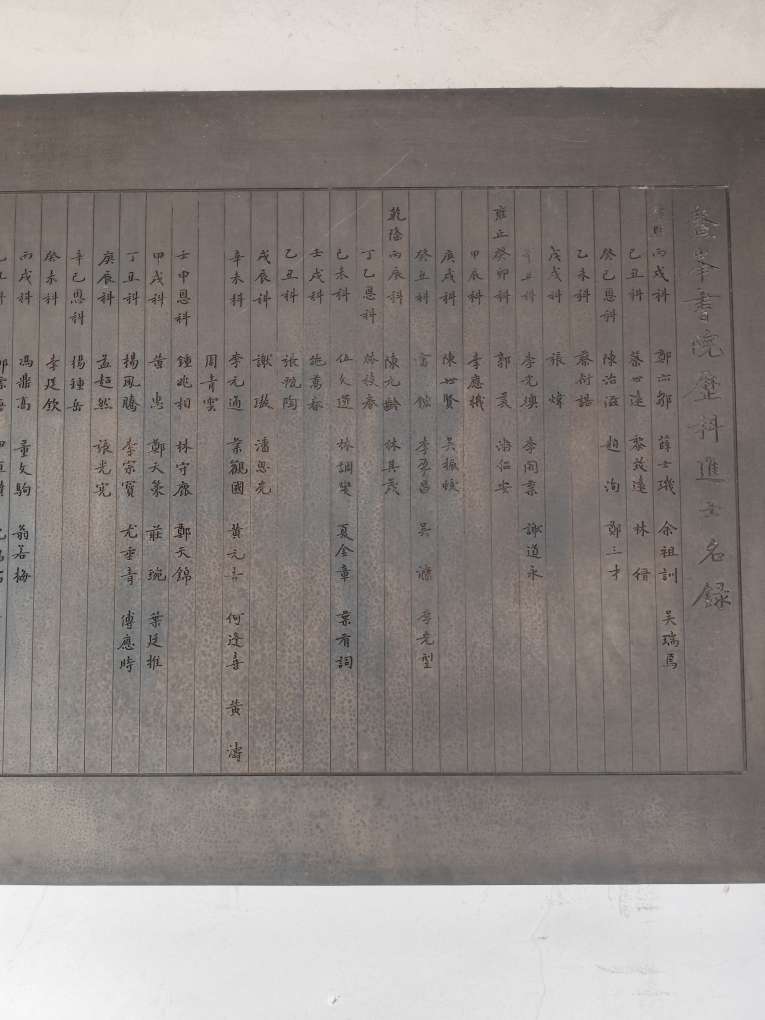 鰲峯書院歷科進士名錄
康熙丙戌科 鄭六部 薛士璣 余祖訓 吴瑞焉
己丑科 蔡世遠 黎致遠 林倄
癸巳恩科 陳治滋 趙洵 鄭三才
乙未科 蔡衍誥
戊戌科 張煒
辛丑科 李光墺 李開葉 謝道永
雍正癸卯科 郭亥 潘仁安
甲辰科 李應機
庚戌科 陳世賢 吴振蛟
癸丑科 富鋐 李孟昌 吴謙 李光型
乾隆丙辰科 陳九齡 林其茂
丁巳恩科 駱校春
己未科 伍文運 林調燮 夏金章 葉有詞
壬戌科 施萬春
乙丑科 張甄陶
戊辰科 謝璈 潘思光
辛未科 李元通 葉觀國 黃元吉 何逢春 黃濤
周青雲
壬申恩科 鍾兆相 林守鹿 鄭天錦
甲戌科 黃惠 鄭天策 莊琬 葉廷推
丁丑科 楊鳳騰 李宗寳 尤垂青 傅應時
庚辰科 孟超然 張光憲
辛巳恩科 楊鍾岳
癸未科 李廷欽
丙戌科 馮鼎高 董文駒 翁若梅